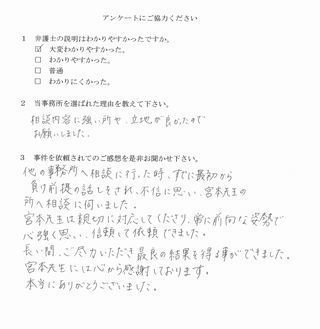 アンケートにご協力ください
1 弁護士の説明はわかりやすかったですか。
☑ 大変わかりやすかった。
□ わかりやすかった。
□ 普通
□ わかりにくかった。
2 当事務所を選ばれた理由を教えて下さい。
相談内容に強い所や、立地が良かったので
お願いしました。
3 事件を依頼されてのご感想を是非お聞かせ下さい。
他の事務所へ相談に行った時、すに最初から
負け前提の話しをされ、不信に思い、宮本先生の
所へ相談に伺いました。
宮本先生は親切に対応してくださり、常に前向な姿勢で
心強く思い、信頼して依頼できました。
長い間、ご尽力いただき最良の結果を得る事ができました。
宮本先生には心から感謝しております。
本当にありがとうございました。